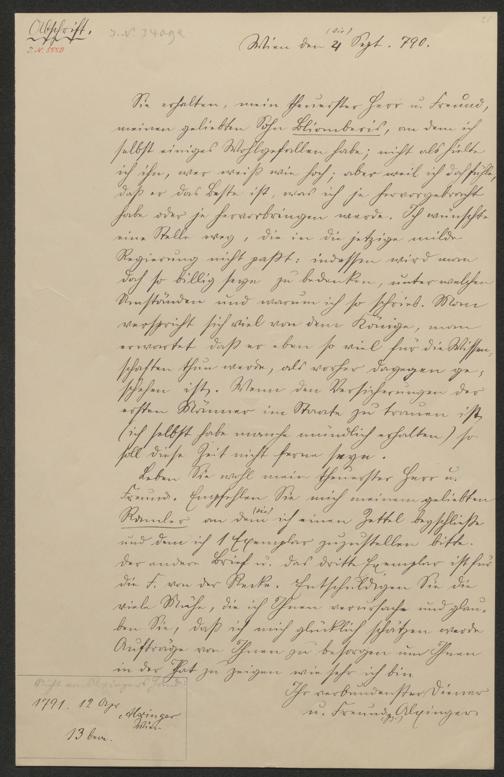 Abschrift.
I. N. 34092
I.N. 5550
(sic)
Wien den 4 Sept. 790.
Sie erhalten, mein theuerster Herr u. Freund,
meinen geliebten Sohn Bliomberis, an dem ich
selbst einiges Wohlgefallen habe; nicht als hielte
ich ihn, wer weiß wie hoch; aber weil ich doch fühle,
daß er das Beste ist, was ich je hervorgebracht
habe oder je hervorbringen werde. Ich wünschte
eine Stelle weg, die in die jetzige milde
Regierung nicht paßt: indessen wird man
doch so billig seyn zu bedenken, unter welchen
Umständen und warum ich so schrieb. Man
verspricht sich viel von dem Könige, man
erwartet daß er eben so viel für die Wissen-
schaften thun werde, als vorher dagegen ge-
schehen ist. Wenn den Versicherungen der
ersten Männer im Staate zu trauen ist,
(ich selbst habe manche mündlich erhalten) so
soll diese Zeit nicht ferne seyn.
Leben Sie wohl mein theuerster Herr u.
Freund. Empfehlen Sie mich meinem geliebten
Ramler an dem (sic) ich einen Zettel beyschließe
und dem ich 1 Exemplar zuzustellen bitte.
Der andere Brief u. das dritte Exemplar ist für
die F. von der Recke. Entschuldigen Sie die
viele Mühe, die ich Ihnen verursache und glau-
ben Sie, daß ich mich glücklich schätzen werde
Aufträge von Ihnen zu besorgen und Ihnen
in der That zu zeigen wie sehr ich bin
Ihr verbundenster Diener
u. Freund Alxinger
Nicht von Alxingers Hand
1791. 12 Apr
Alxinger
Wien.
13